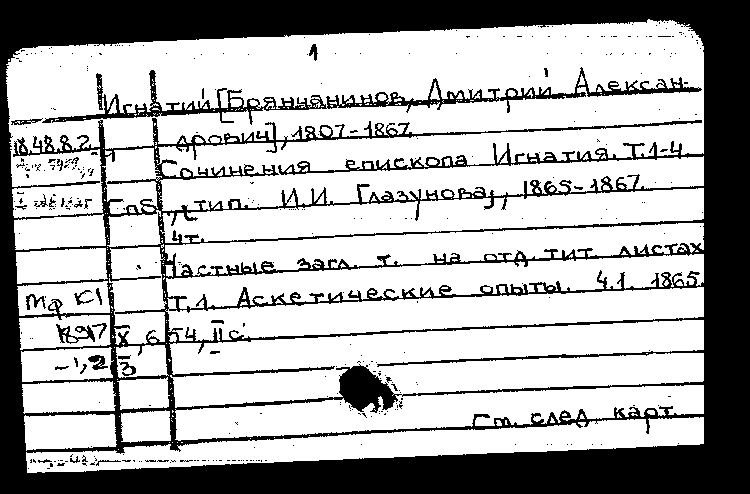 1
Игнатий [Брянчанинов, Дмитрий Алексан-
дрович], 1807-1867.
18.48.8.2
Сочинения епископа Игнатия. Т.1-4.
Спб, тип. И.И. Глазунова, 1865-1867.
4т.
Частные загл. т. на отд. тит. листах
Мф К1
Т.1. Аскетические опыты. Ч.1. 1865.
X, 654, II с.
См. след карт.